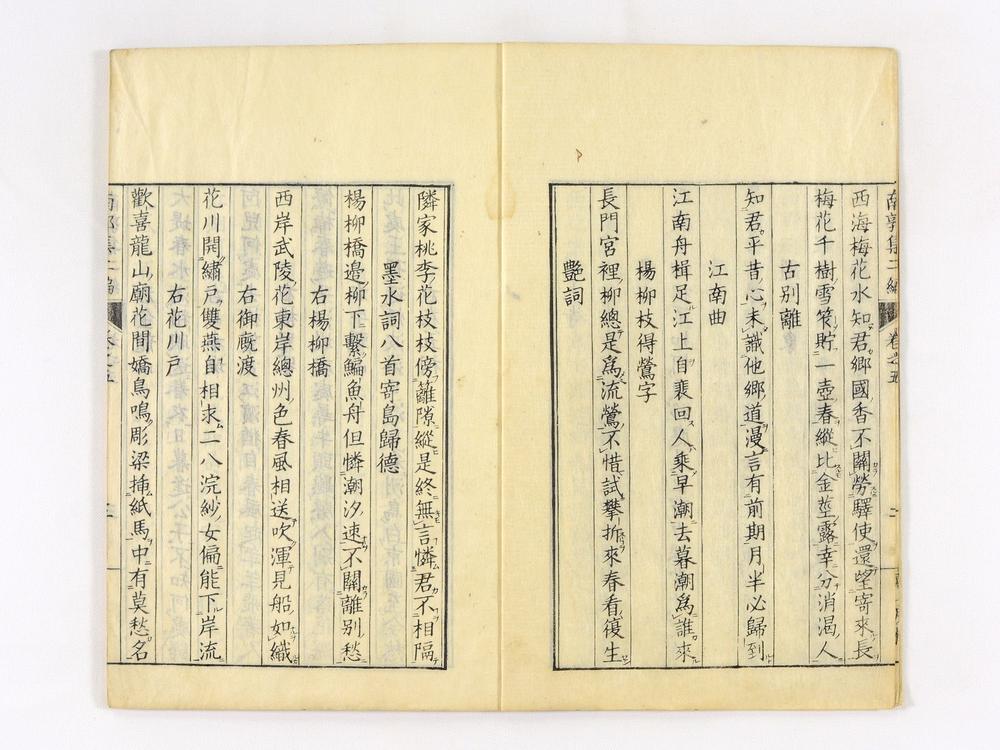 西海梅花水知君郷國香不關勞驛使還望寄來長
梅花千樹雪笮貯一壺春縱比金莖露幸分消渴人
古別離
知君平昔心未識他郷道漫言有前期月半必歸到
江南曲
江南舟楫足江上自裴回人乘早潮去暮潮爲誰來
楊柳枝得鶯字
長門宮裡柳總是爲流鶯不惜試攀折來春看復生
艷詞
隣家桃李花枝枝傍籬隙縱是終無言憐君不相隔
墨水詞八首寄島歸德
楊柳橋邉柳下繫鯿魚舟但憐潮汐速不關離別愁
右楊柳橋
西岸武陵花東岸總州色春風相送吹渾見船如織
右御廐渡
花川開繡戸雙燕自相求二八浣紗女偏能下岸流
右花川戸
歡喜龍山廟花間嬌鳥鳴彫梁挿紙馬中有莫愁名